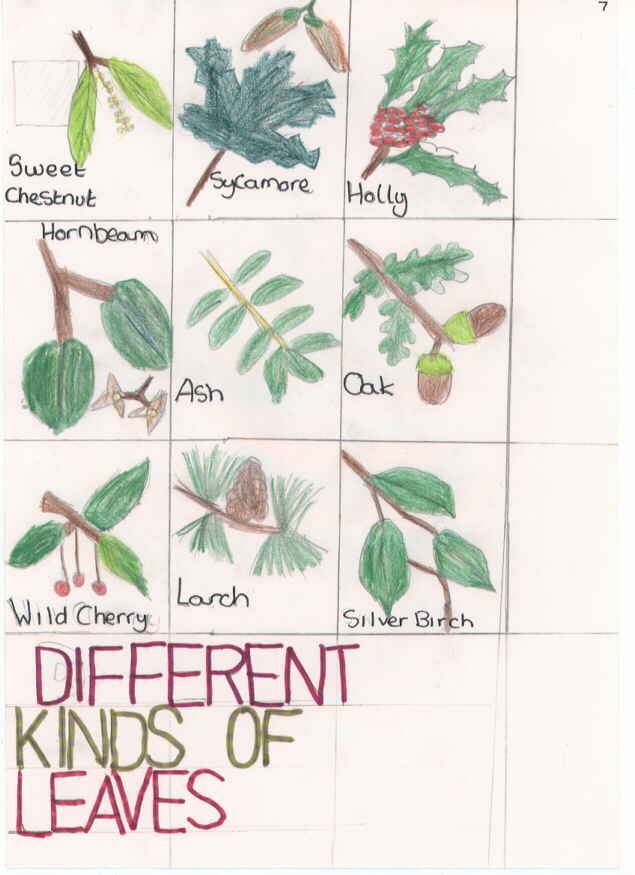 7
Sweet
Chestnut
Sycamore
Holly
Hornbeam
Ash
Oak
Wild Cherry
Larch
Silver Birch
DIFFERENT
KINDS OF
LEAVES